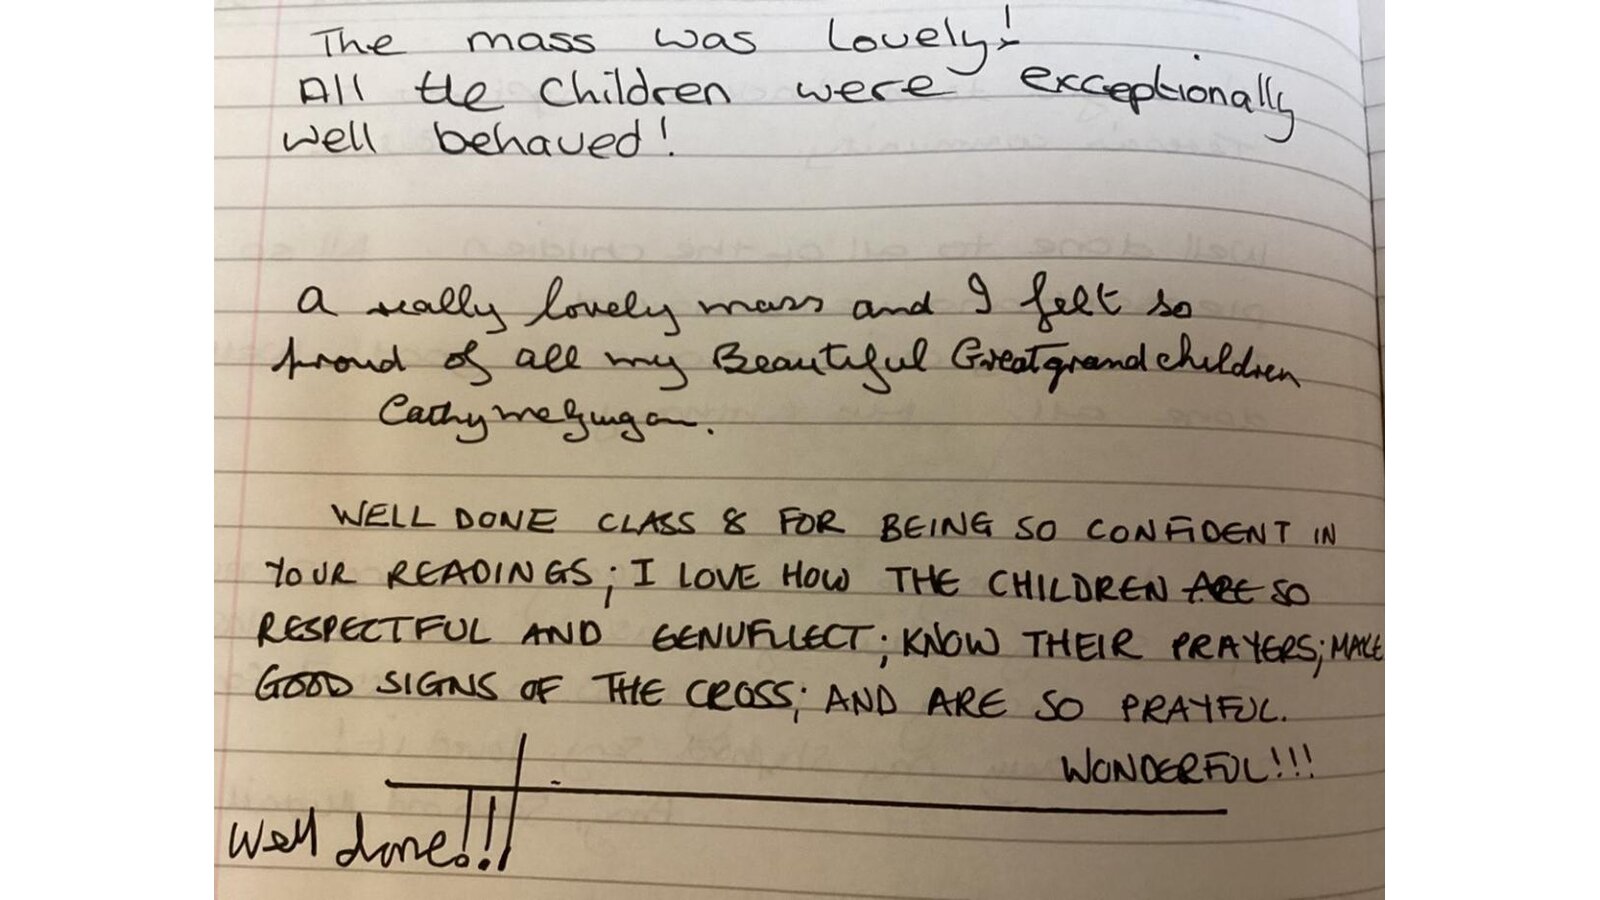 The mass was lovely!
All the children were exceptionally
well behaved!
A really lovely mass and I felt so
proud of all my Beautiful Greatgrandchildren
Cathy McGuigan.
WELL DONE CLASS 8 FOR BEING SO CONFIDENT IN
YOUR READINGS; I LOVE HOW THE CHILDREN ARE SO
RESPECTFUL AND GENUFLLECT; KNOW THEIR PRAYERS; MAKE
GOOD SIGNS OF THE CROSS; AND ARE SO PRAYFUL.
WONDERFUL!!!
Well done!!!